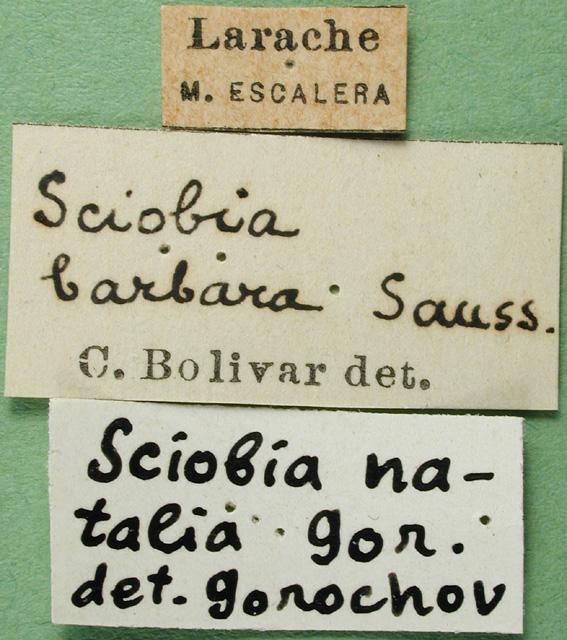 Larache
M. ESCALERA
Sciobia
barbara Sauss.
C. Bolivar det.
Sciobia na-
talia gor.
det. gorochov